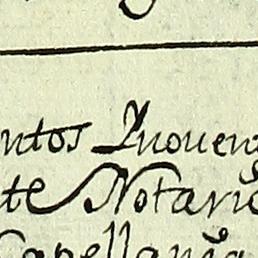 ntos Ynoven
te Notari
Capellania